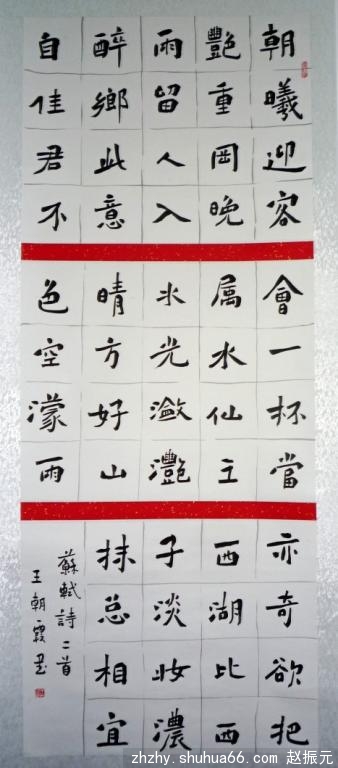 朝曦迎客
豔重岡晚
雨留人入
醉鄉此意
自佳君不
會一杯當
属水仙主
水光瀲灩
晴方好山
色空濛雨
亦奇欲把
西湖比西
子淡妝濃
抹总相宜
蘇軾詩二首
王朝霞书
zhzhy.shuhua66.com 赵振元